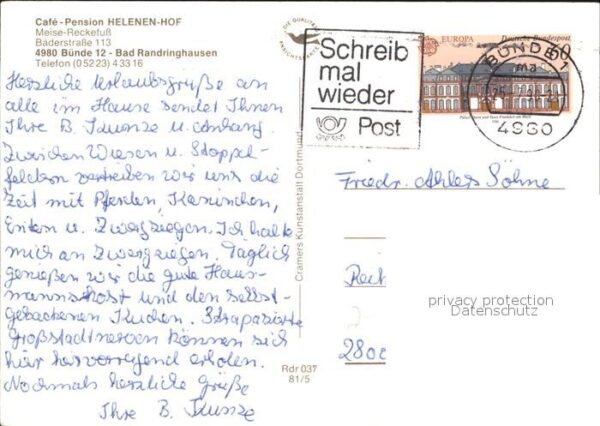 Café-Pension HELENEN-HOF
Meise-Reckefuß
Bäderstraße 113
4980 Bünde 12 - Bad Randringhausen
Telefon (05223) 43316
Herzliche Urlaubsgrüße an
alle im Hause sendet Ihnen
Ihre B. Kunze u. Anhang.
Zwischen Wiesen u. Stoppel-
feldern vertreiben wir uns die
Zeit mit Pferden, Kaninchen,
Enten u. Zwergziegen. Ich halte
mich an Zwergziegen. Täglich
genießen wir die gute Haus-
mannskost und den selbst-
gebackenen Kuchen. Strapazierte
Großstadtnerven können sich
hier hervorragend erholen.
Nochmals herzliche Grüße
Ihre B. Kunze
DIE QUALITÄTS
ANSICHTSKARTE
Cramers Kunstanstalt Dortmund
Rdr 037
81/5
Schreib
mal
wieder
Post
EUROPA
Deutsche Bundespost
60
BÜNDE 1
4980
Friedr. Ahlers Söhne
privacy protection
Datenschutz